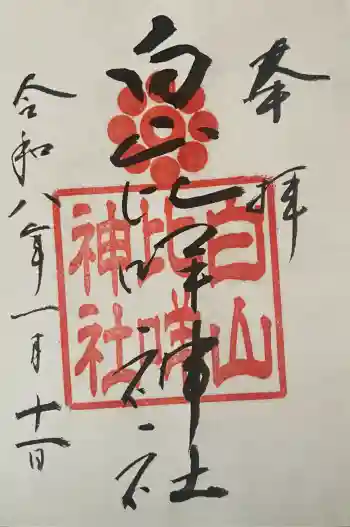 奉拝
白山比咩神社
令和八年一月十一日
白山
比咩
神社